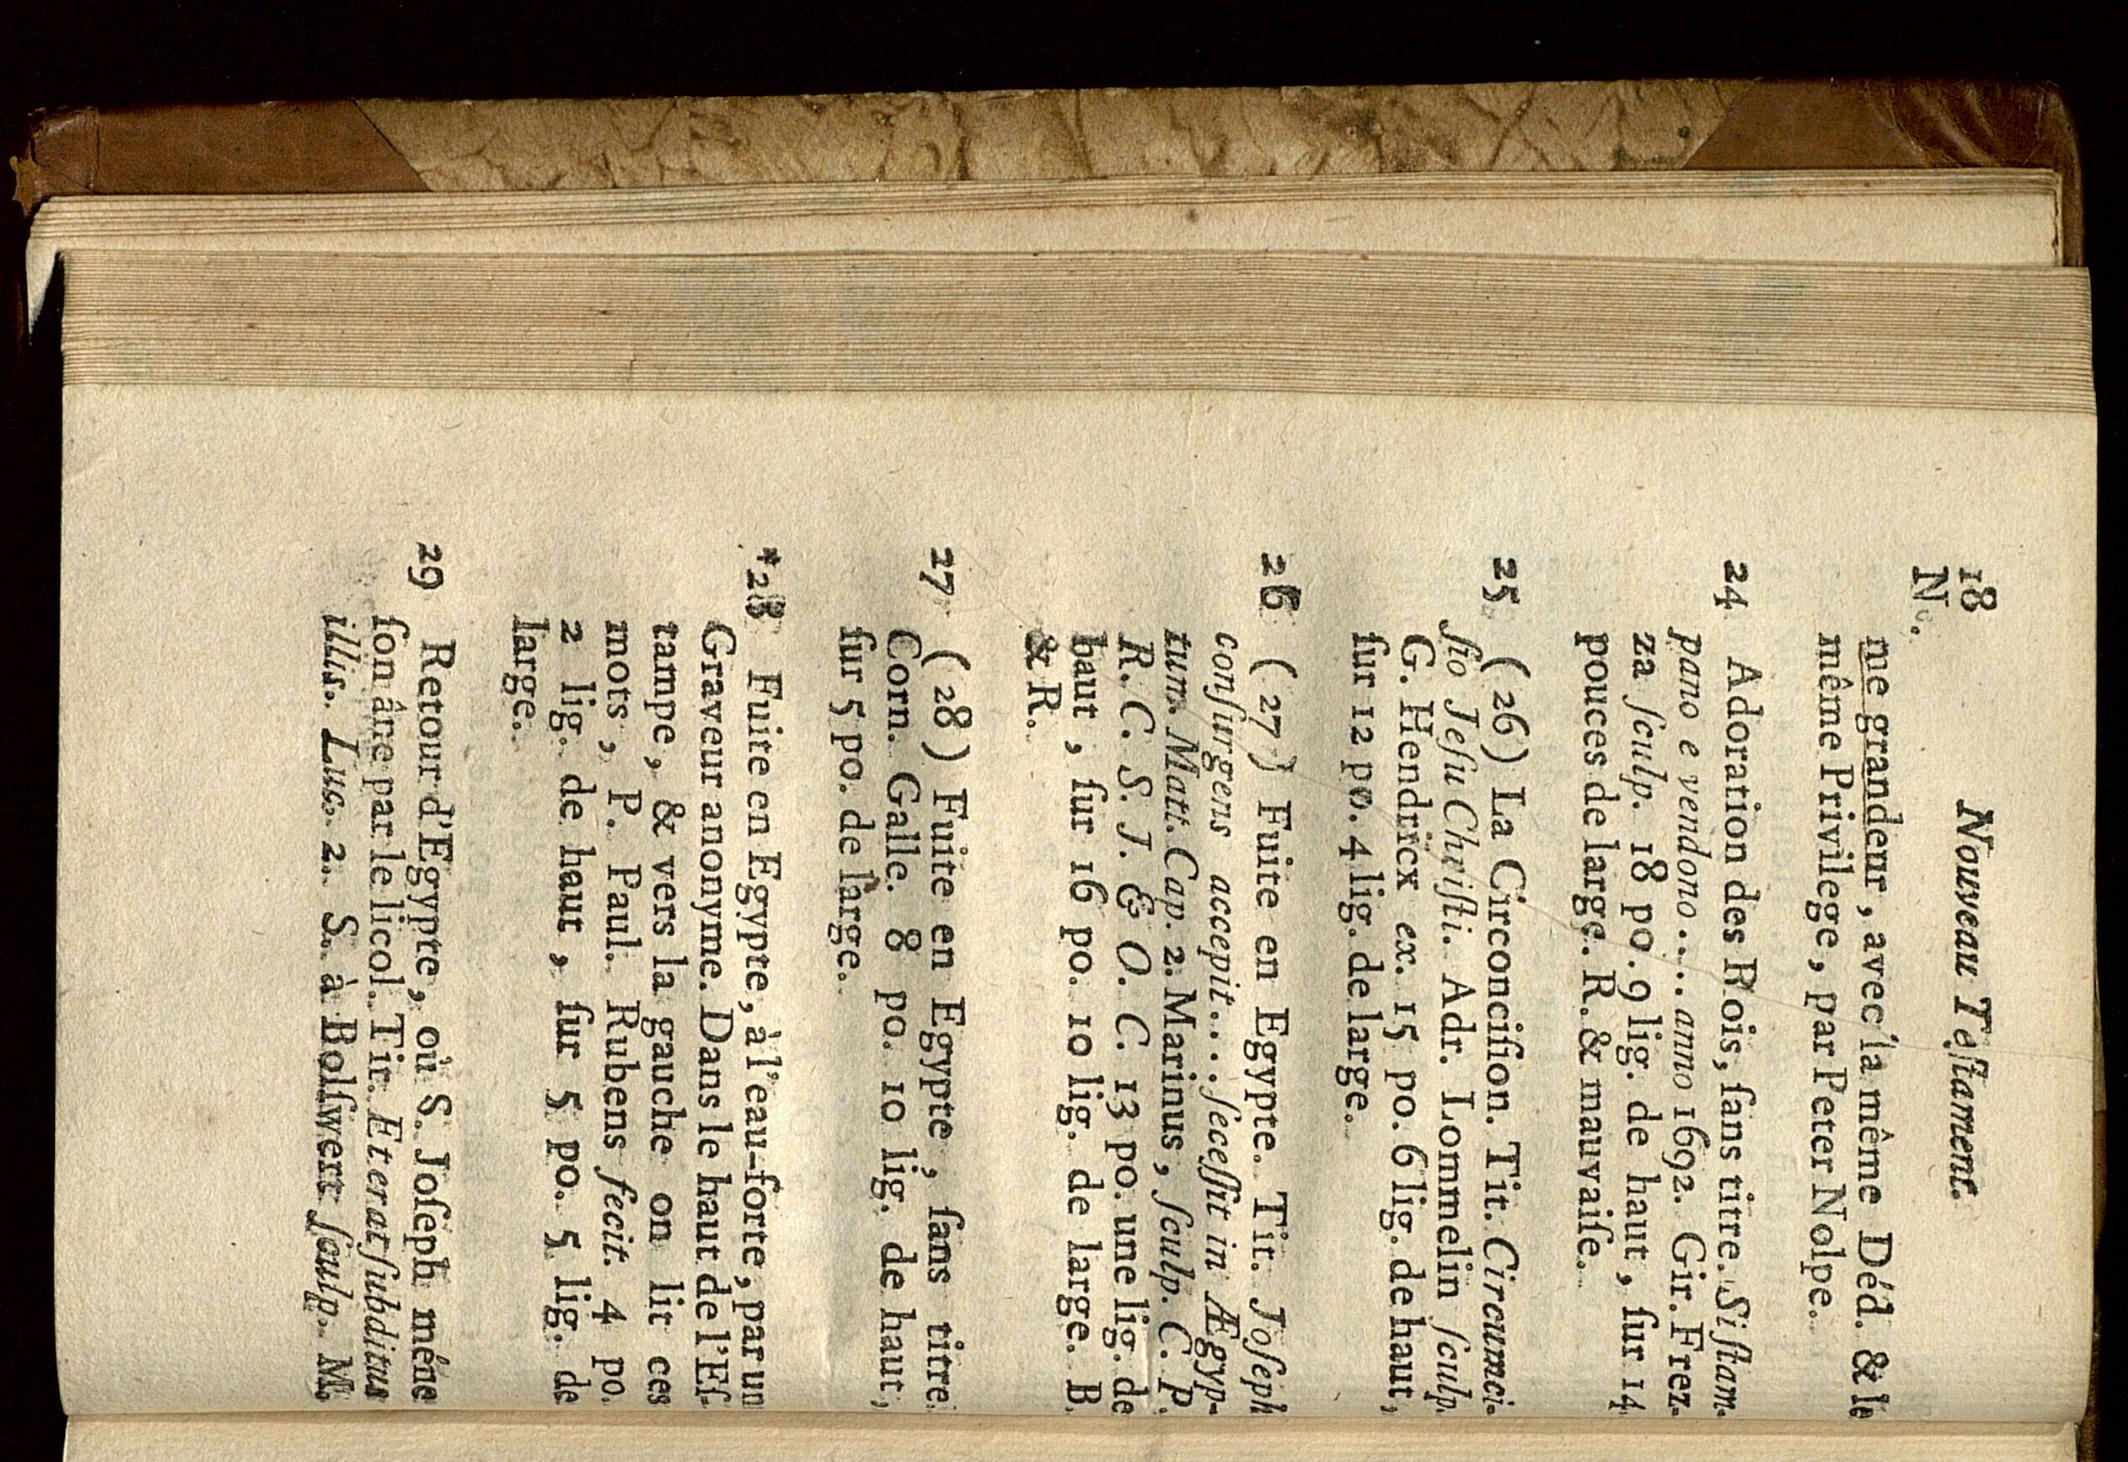 18 Nouveau Teſtament.
N°.
me grandeur, avec la même Déd. & le
même Privilege, par Peter Nolpe.
24 Adoration des Rois, ſans titre. Si ſtam-
pano e vendono.... anno 1692. Gir. Frez-
za ſculp. 18 po. 9 lig. de haut, ſur 14
pouces de large. R. & mauvaiſe.
25 (26) La Circonciſion. Tit. Circumci-
ſio Jeſu Chriſti. Adr. Lommelin ſculp.
G. Hendricx ex. 15 po. 6 lig. de haut,
ſur 12 po. 4 lig. de large.
26 (27) Fuite en Egypte. Tit. Joſeph
conſurgens accepit.... ſeceſſit in Ægyp-
tum. Matt. Cap. 2. Marinus, ſculp. C. P.
R. C. S. J. & O. C. 13 po. une lig. de
haut, ſur 16 po. 10 lig. de large. B.
& R.
27 (28) Fuite en Egypte, ſans titre.
Corn. Galle. 8 po. 10 lig. de haut,
ſur 5 po. de large.
*28 Fuite en Egypte, à l'eau-forte, par un
Graveur anonyme. Dans le haut de l'Eſ-
tampe, & vers la gauche on lit ces
mots, P. Paul. Rubens fecit. 4 po.
2 lig. de haut, ſur 5 po. 5 lig. de
large.
29 Retour d'Egypte, où S. Joſeph méne
ſon âne par le licol. Tit. Et erat ſubditus
illis. Luc. 2. S. à Bolſwert ſculp. M.